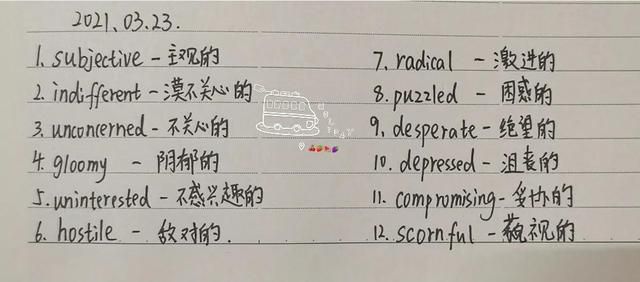 2021.03.23.
1. subjective - 主观的
2. indifferent - 漠不关心的
3. unconcerned - 不关心的
4. gloomy - 阴郁的
5. uninterested - 不感兴趣的
6. hostile - 敌对的.
7. radical - 激进的
8. puzzled - 困惑的
9. desperate - 绝望的
10. depressed - 沮丧的
11. compromising - 妥协的
12. scornful - 藐视的